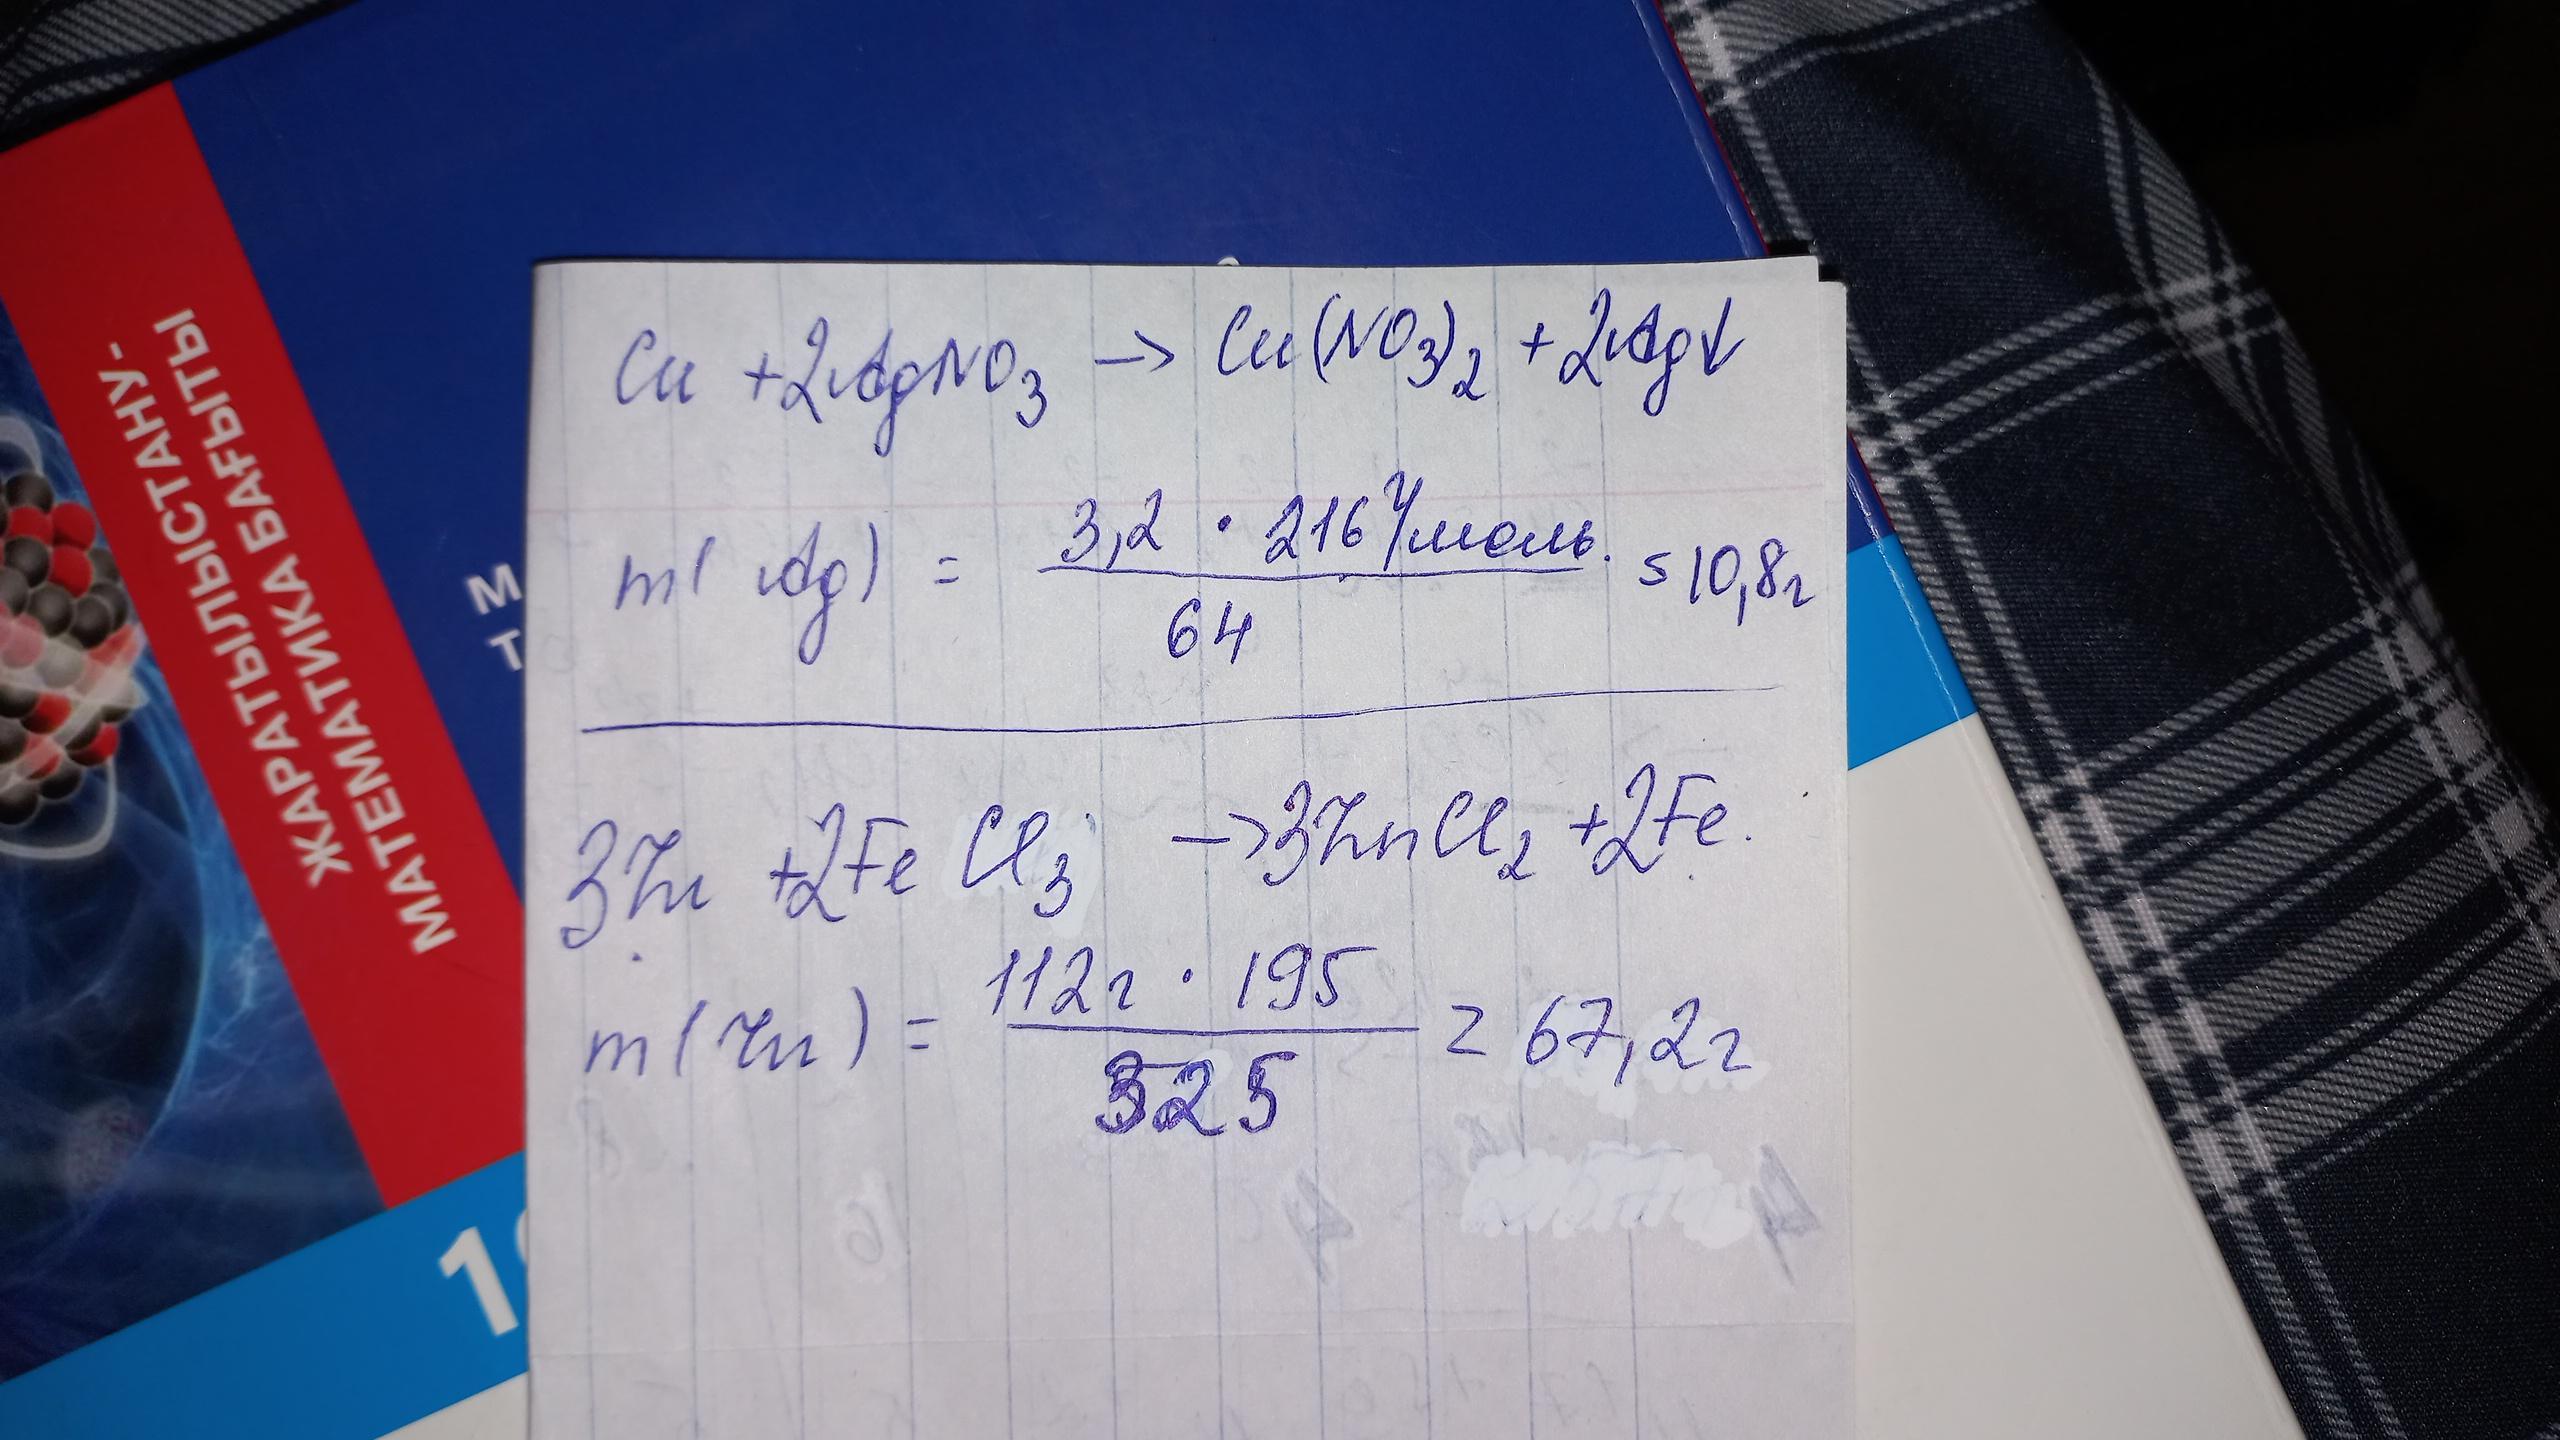 ЖАРАТЫЛЫСТАНУ-
МАТЕМАТИКА БАҒЫТЫ
М
Т
1
Cu + 2AgNO3 -> Cu(NO3)2 + 2Ag↓
m(Ag) = 3,2 · 216 г/моль. / 64 = 10,8г
3Zn + 2FeCl3 -> 3ZnCl2 + 2Fe.
m(Zn) = 112г · 195 / 325 = 67,2г